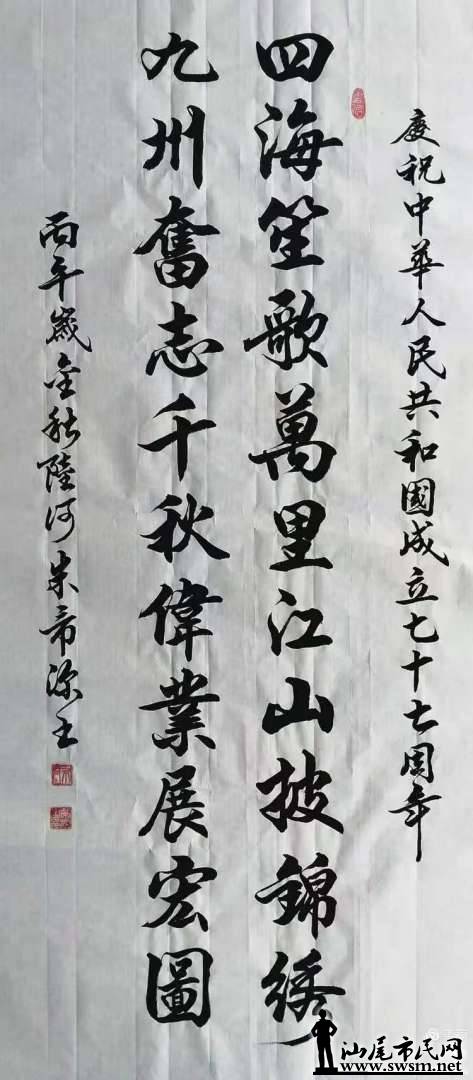 庆祝中華人民共和國成立七十七周年
四海笙歌萬里江山披錦绣
九州奮志千秋偉業展宏圖
丙午嵗金秋陸河朱帝源书
汕尾市民网
www.swsm.net